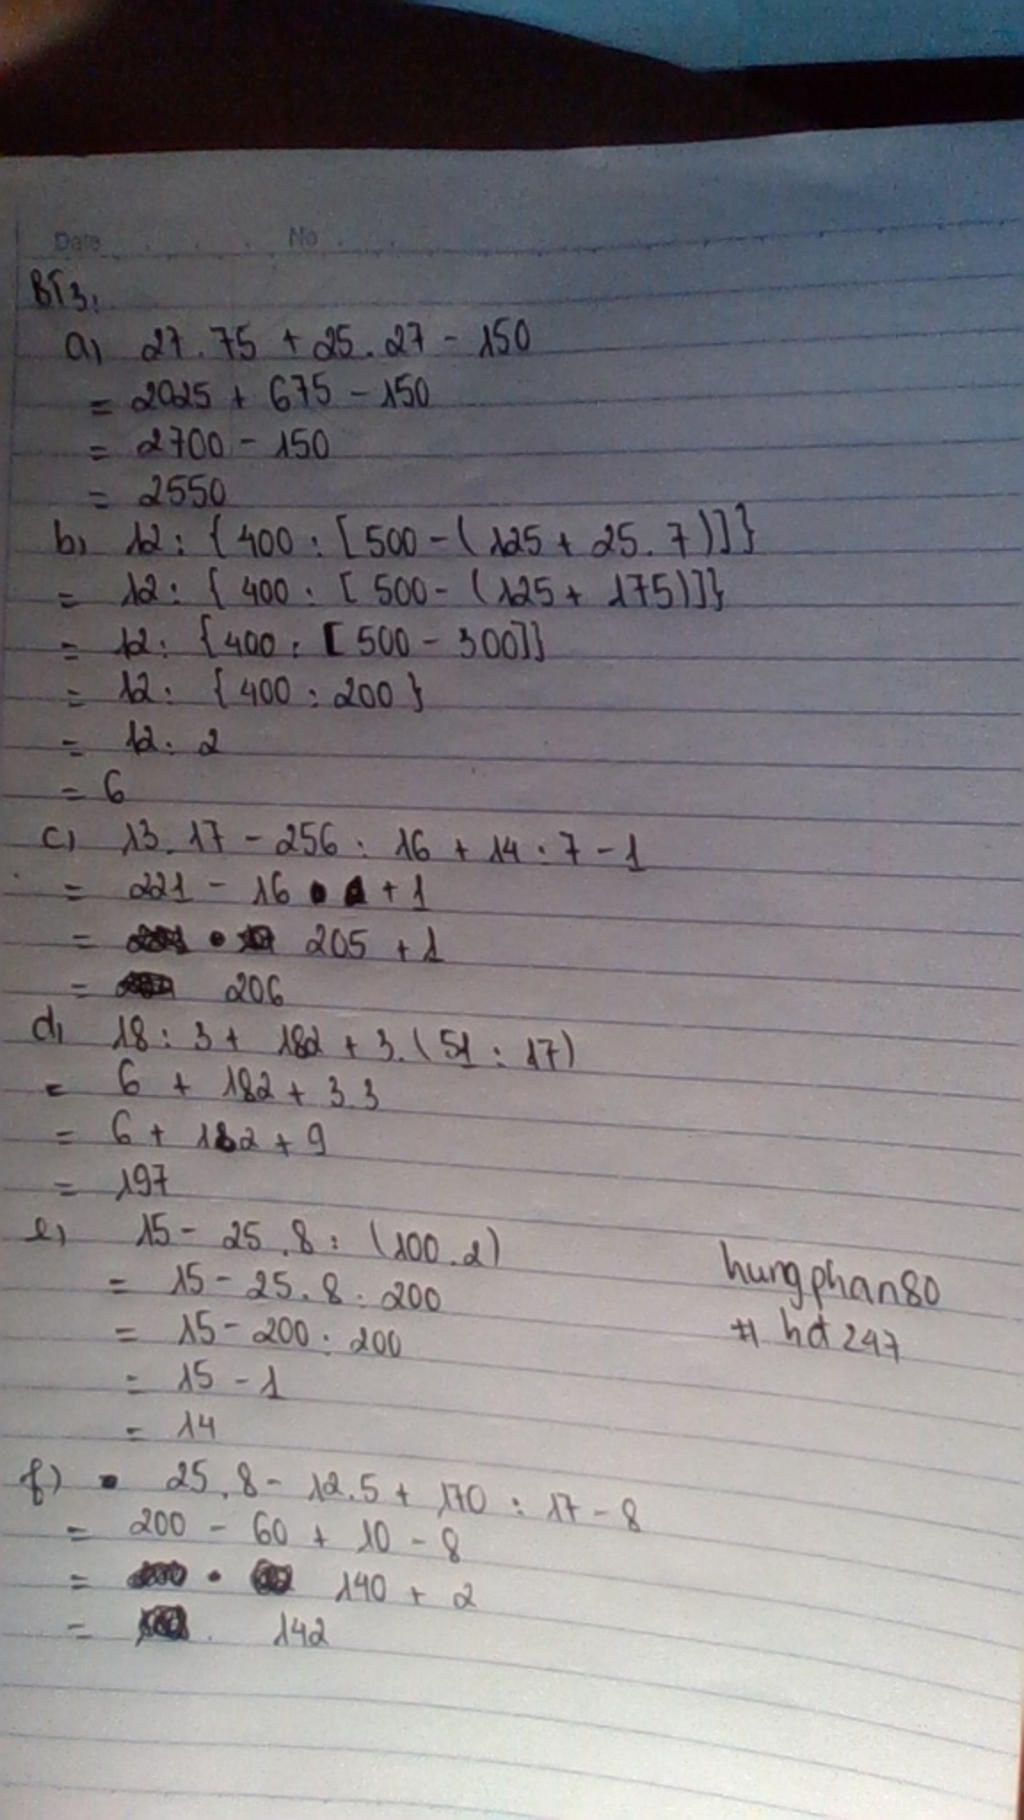 Date No
BT3:
a) 27.75 + 25.27 - 150
= 2025 + 675 - 150
= 2700 - 150
= 2550
b) 12 : { 400 : [ 500 - ( 125 + 25.7 ) ] }
= 12 : { 400 : [ 500 - ( 125 + 175 ) ] }
= 12 : { 400 : [ 500 - 300 ] }
= 12 : { 400 : 200 }
= 12 : 2
= 6
c) 13.17 - 256 : 16 + 14 : 7 - 1
= 221 - 16 + 1
= 205 + 1
= 206
d) 18 : 3 + 182 + 3.(51 : 17)
= 6 + 182 + 3.3
= 6 + 182 + 9
= 197
e) 15 - 25.8 : (100.2)
= 15 - 25.8 : 200
= 15 - 200 : 200
= 15 - 1
= 14
hungphan80
# hd247
f) 25.8 - 12.5 + 170 : 17 - 8
= 200 - 60 + 10 - 8
= 140 + 2
= 142